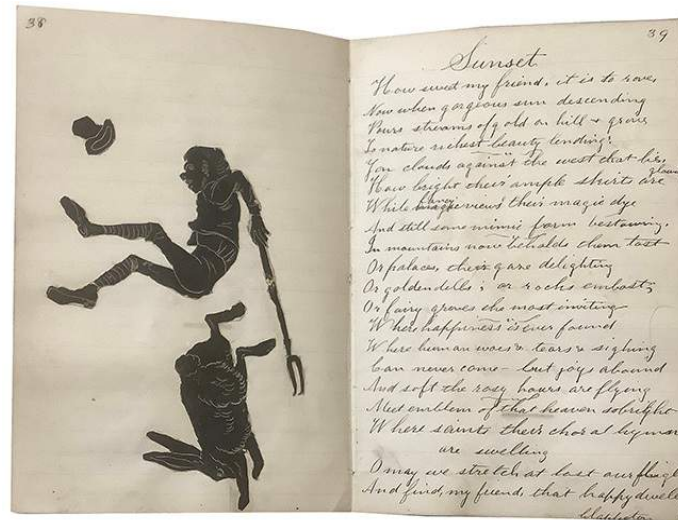 38
39
Sunset
How sweet my friend, it is to rove,
Now when gorgeous sun descending
Pours streams of gold on hill & grove
To nature richest beauty lending:
Yon clouds against the west that lie,
How bright their ample skirts are
While fancy views their magic dye
And still some mimic form bestowing.
In mountains now beholds them tost
Or palaces their gaze delighting
Or golden dells; or rocks embost;
Or fairy groves the most inviting
Where happiness is ever found
Where human woes & tears & sighing
Can never come - but joys abound
And soft the rosy hours are flying
Meet emblem of that heaven so bright
Where saints their choral hymns
are swelling
O may we stretch at last our flight
And find, my friend, that happy dwell